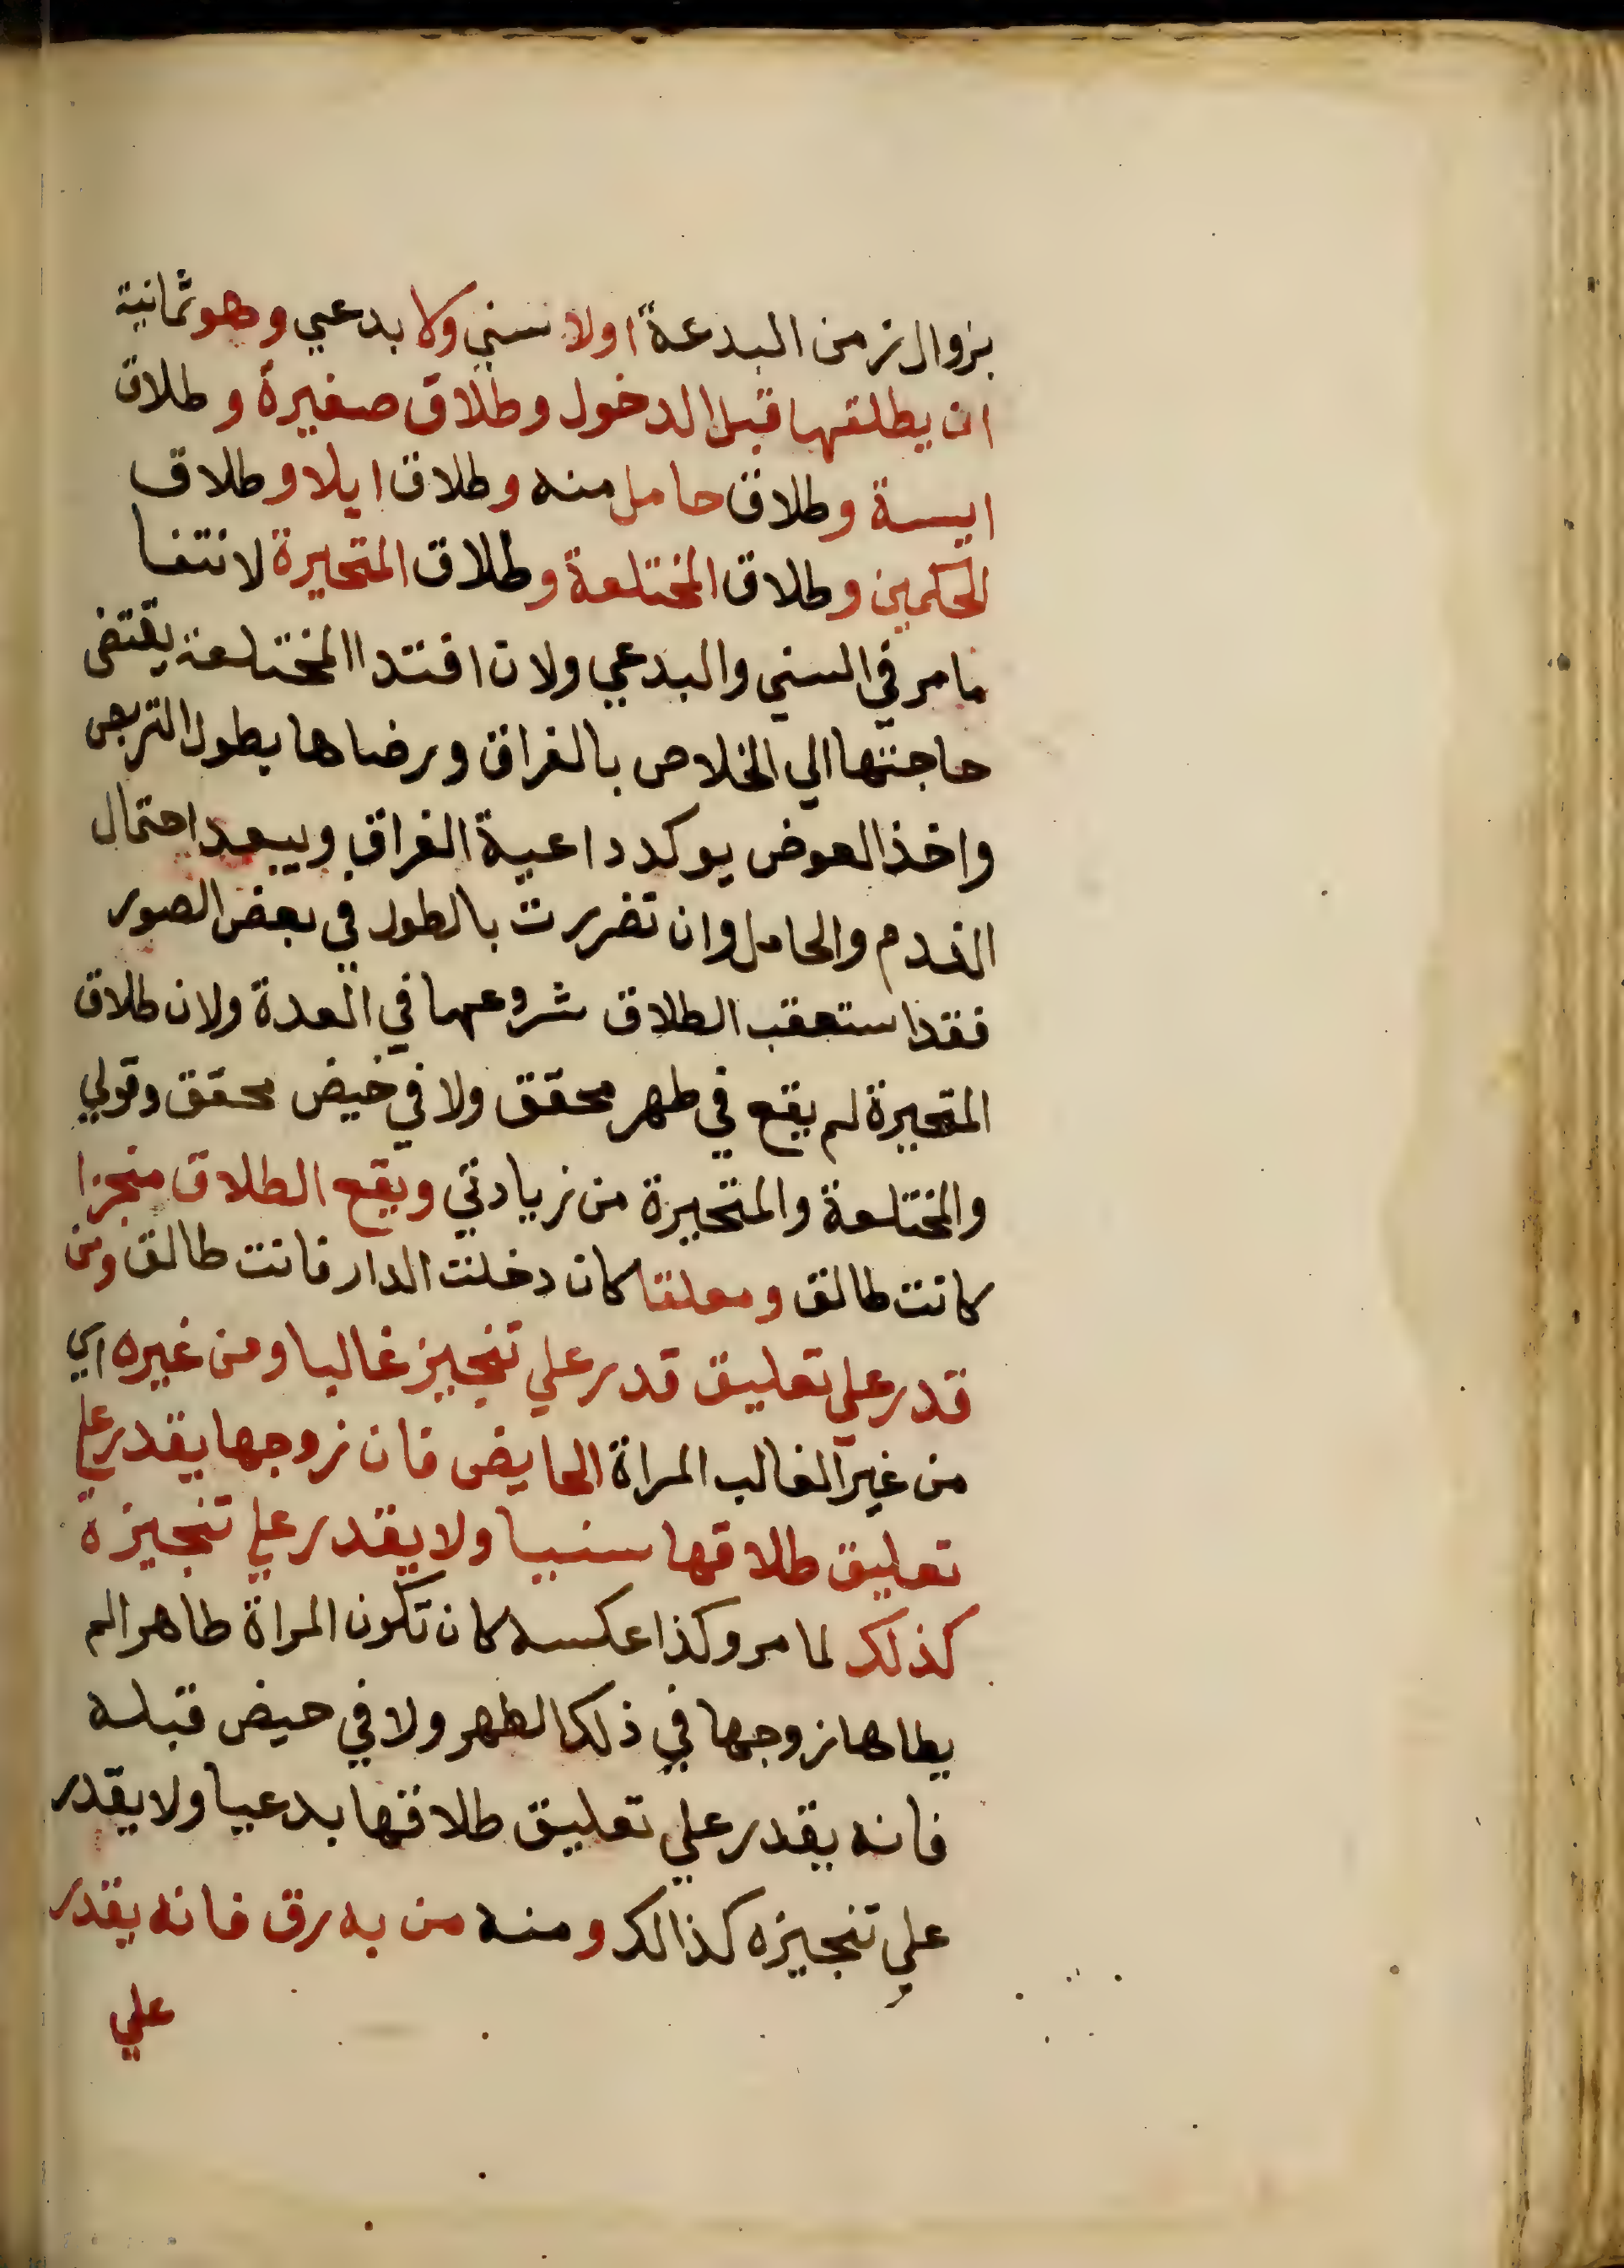 بزوال زمن البدعة اولا سني ولا بدعي وهو ثمانية
ان يطلقها قبل الدخول وطلاق صغيرة وطلاق
ايسة وطلاق حامل منه وطلاق ايلا وطلاق
الحكمين وطلاق المختلعة وطلاق المتحيرة لانتفا
ما مر في السني والبدعي ولان افتدا المختلعة يقتضي
حاجتها الي الخلاص بالفراق ورضاها بطول التربص
واخذ العوض يوكد داعية الفراق ويبعد احتمال
الندم والحامل وان تضررت بالطول في بعض الصور
فقد استعقب الطلاق شروعها في العدة ولان طلاق
المتحيرة لم يقع في طهر محقق ولا في حيض محقق وقولي
والمختلعة والمتحيرة من زيادتي ويقع الطلاق منجزا
كانت طالق ومعلقا كان دخلت الدار فانت طالق ومن
قدر علي تعليق قدر علي تنجيز غالبا ومن غيره اي
من غير الغالب المراة الحايض فان زوجها يقدر علي
تعليق طلاقها سنيا ولا يقدر علي تنجيزة
كذلك لما مر وكذا عكسه كان تكون المراة طاهرا لم
يطاها زوجها في ذلك الطهر ولا في حيض قبله
فانه يقدر علي تعليق طلاقها بدعيا ولا يقدر
علي تنجيزه كذالك ومنه من به رق فانه يقدر
علي